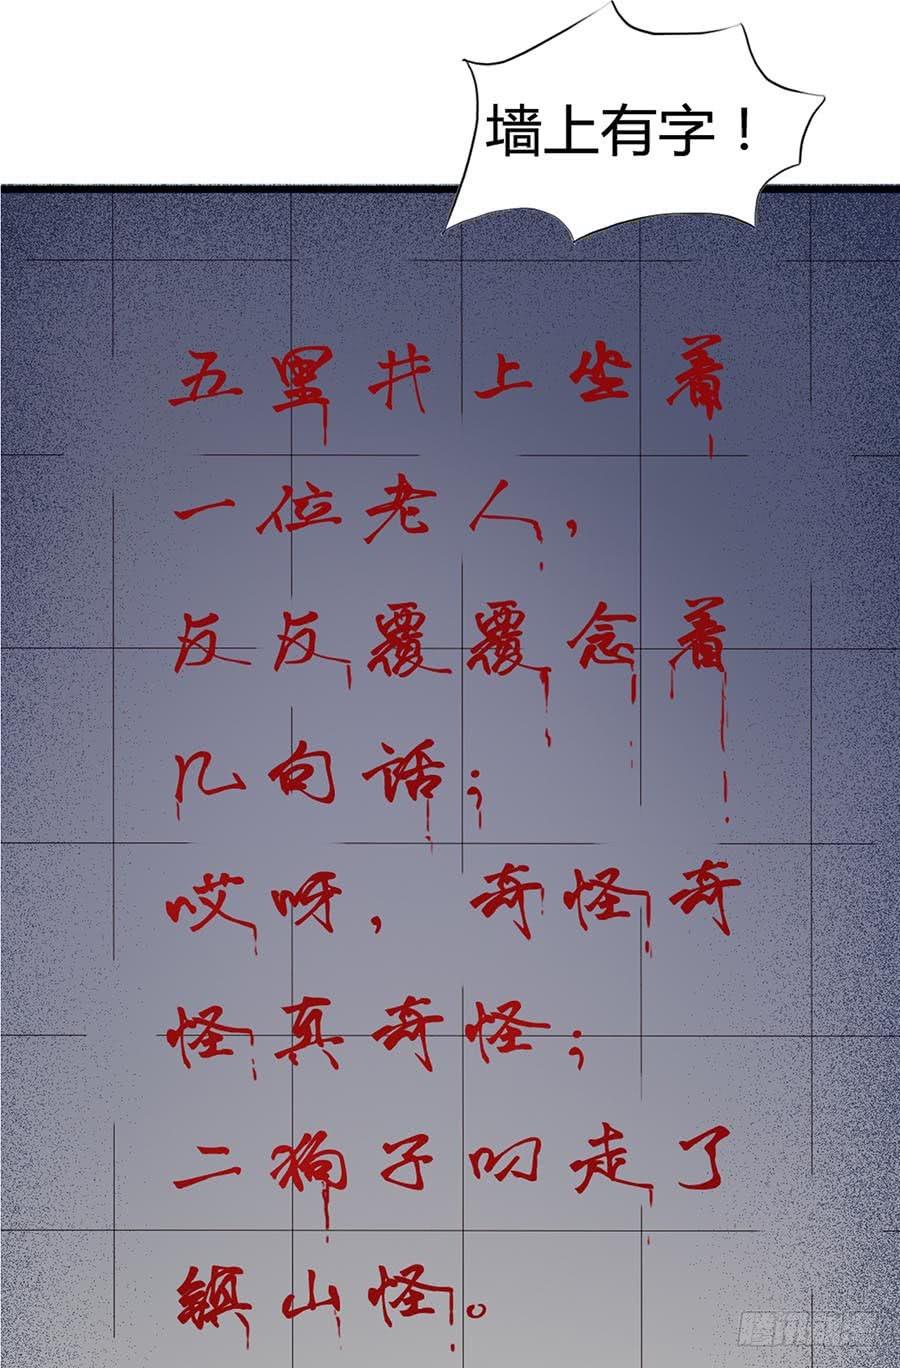 墙上有字！
五里井上坐着
一位老人，
反反覆覆念着
几句话；
哎呀，奇怪奇
怪真奇怪；
二狗子叼走了
镇山怪。
腾讯动漫